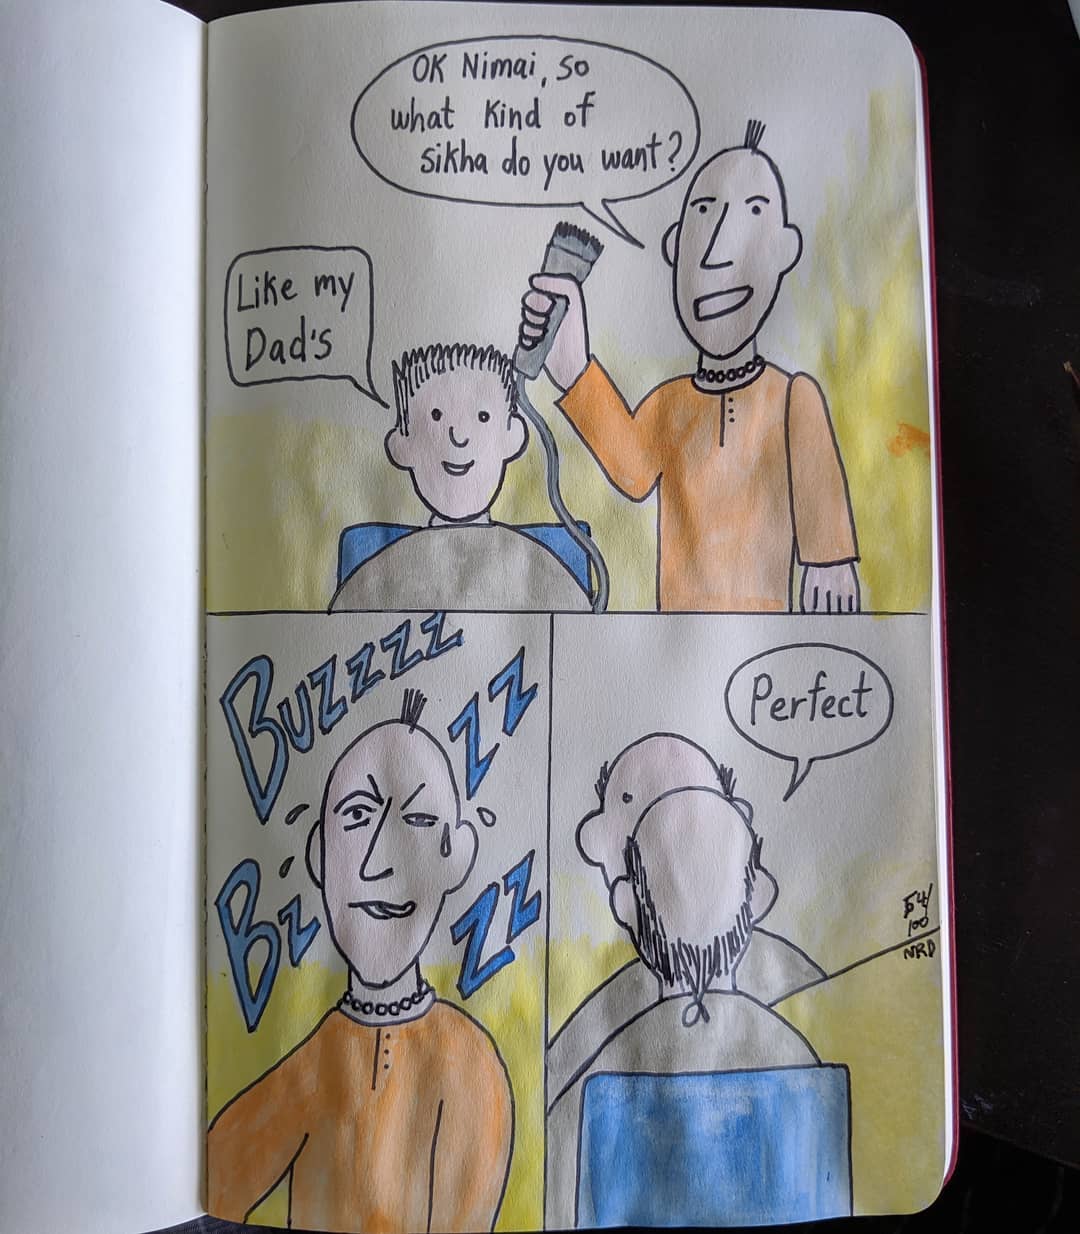 OK Nimai, so
what kind of
sikha do you want?
Like my
Dad's
Buzzzzz
zz
Bz
zz
Perfect
54/
100
NRD